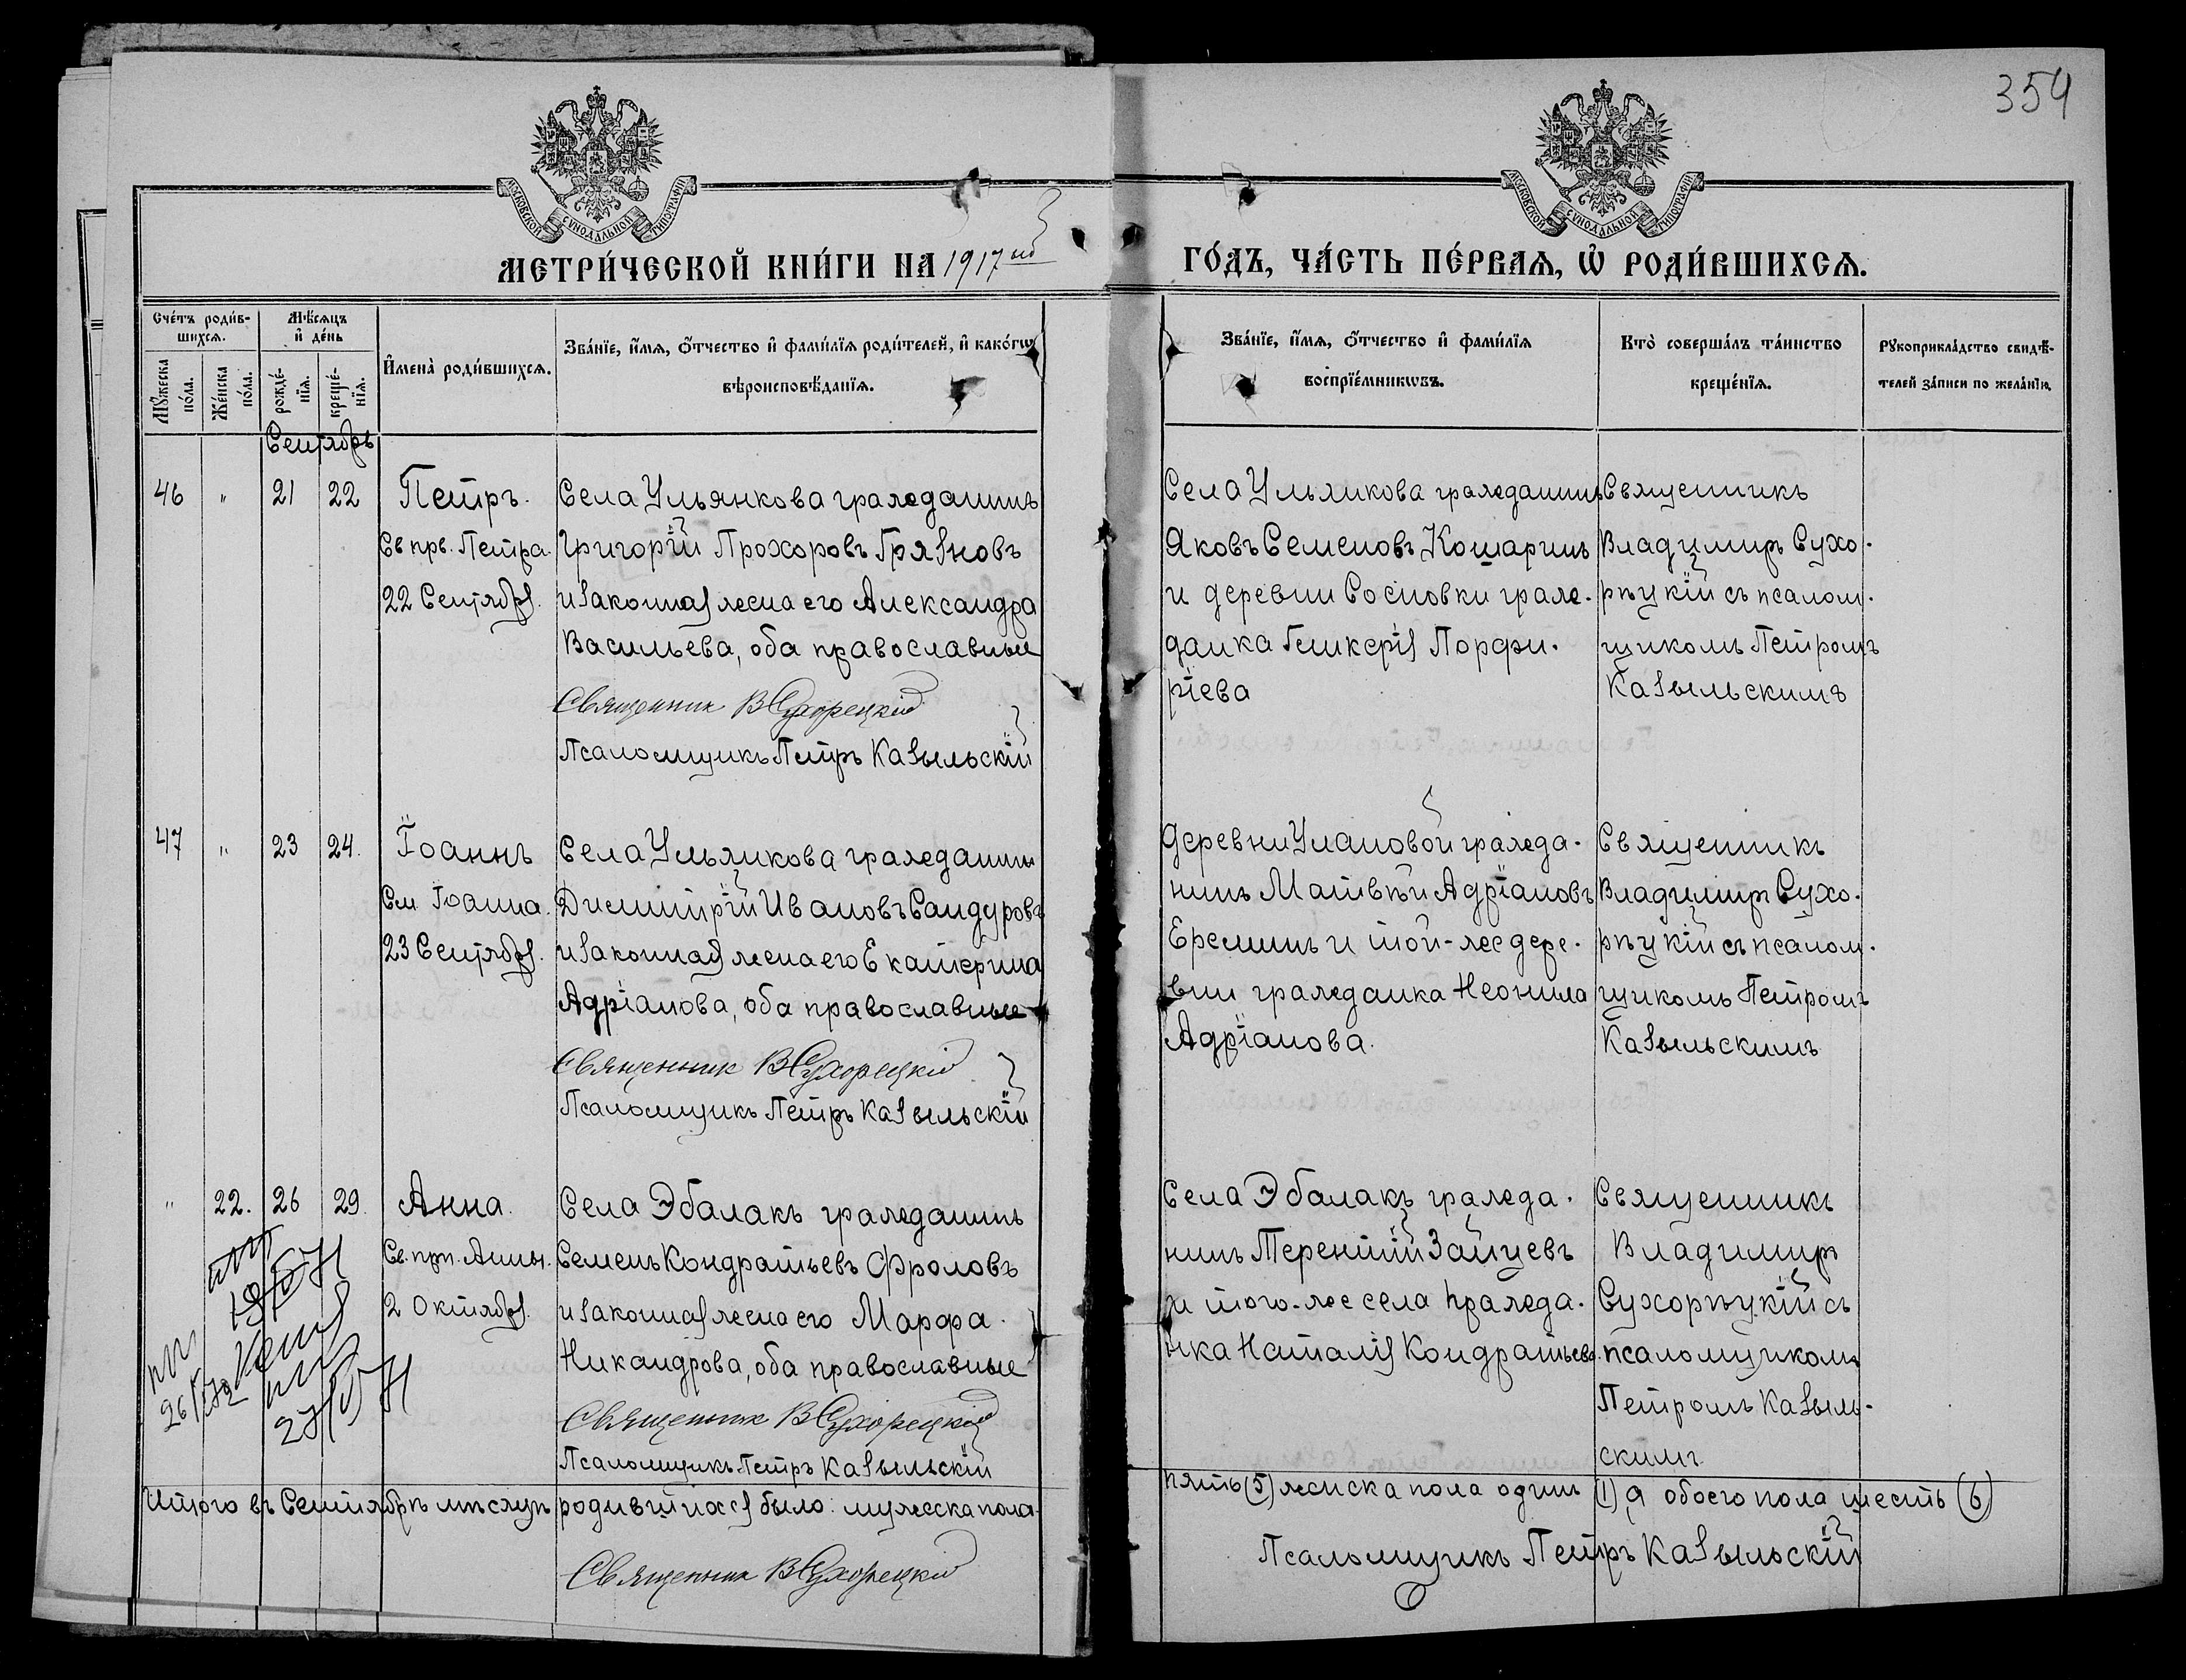 354
МОСКОВСКОЙ СѴНОДАЛЬНОЙ ТИПОГРАФІИ
МОСКОВСКОЙ СѴНОДАЛЬНОЙ ТИПОГРАФІИ
МЕТРИ́ЧЕСКОЙ КНИ́ГИ НА 1917ый ГО́ДЪ, ЧА́СТЬ ПЕ́РВАѦ, Ѽ РОДИ́ВШИХСѦ.
Сче́тъ роди́в-
шихсѧ.
Мѣ́сѧцъ
и҆ де́нь
Мꙋ́жеска по́ла.
Же́нска по́ла.
рожде́-нїѧ.
креще́-нїѧ.
И҆мена̀ роди́вшихсѧ.
Зва́нїе, и҆́мѧ, ѻ҆́тчество и҆ фами́лїѧ роди́телей, и҆ како́гѡ
вѣроисповѣ́данїѧ.
Зва́нїе, и҆́мѧ, ѻ҆́тчество и҆ фами́лїѧ
воспрїе́мникѡвъ.
Кто̀ соверша́лъ та́инство
креще́нїѧ.
Рꙋкоприкла́дство свидѣ́-
телей за́писи по жела́нїю.
Сентябрь
46 " 21 22
Петръ.
Св прв. Петра.
22 Сентября.
Села Ульянкова гражданинъ
Григорій Прохоровъ Грязновъ
и законная жена его Александра
Васильева, оба православные
Священник В Сухорецкій
Псаломщикъ Петръ Казыльскій
Села Ульянкова гражданинъ
Яковъ Семеновъ Кошаринъ
и деревни Сосновки граж-
данка Гликерія Порфи-
ріева
Священникъ
Владимиръ Сухо-
рѣцкій съ псалом-
щикомъ Петромъ
Казыльскимъ
47 " 23 24.
Іоаннъ
Іоанна.
23 Сентября.
Села Ульянкова гражданинъ
Димитрій Ивановъ Сандуровъ
и законная жена его Екатерина
Адріанова, оба православные
Священник В Сухорецкій
Псаломщикъ Петръ Казыльскій
Деревни Улановой гражда-
нинъ Матвѣй Адріановъ
Ереминъ и той-же дере-
вни гражданка Неонила
Адріанова.
Священникъ
Владимиръ Сухо-
рѣцкій съ псалом-
щикомъ Петромъ
Казыльскимъ
" 22. 26 29.
Анна.
Св. прп. Анны.
2 Октября.
Села Эбалакъ гражданинъ
Семенъ Кондратьевъ Фроловъ
и законная жена его Марфа
Никандрова, оба православные
Священник В Сухорецкій
Псаломщикъ Петръ Казыльскій
Села Эбалакъ гражда-
нинъ Терентій Зайцевъ
и того-же села гражда-
нка Наталія Кондратьева.
Священникъ
Владимиръ
Сухорѣцкій съ
псаломщикомъ
Петромъ Казыль-
скимъ
Итого въ Сентябрѣ мѣсяцѣ родившихся было: мужеска пола-
пять (5) женска пола одинъ (1), а обоего пола шесть (6)
Священник В Сухорецкій
Псаломщикъ Петръ Казыльскій